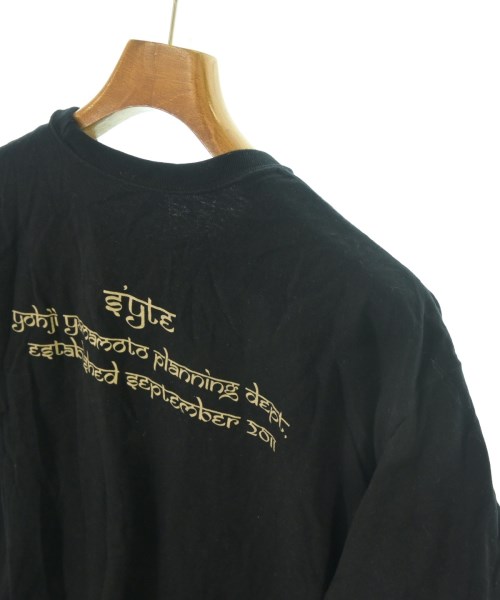 s'yte
yohji yamamoto planning dept.
established september 2011